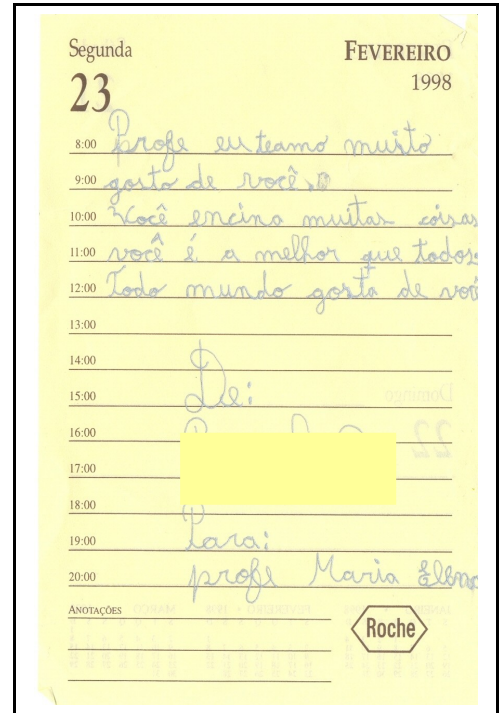 Segunda
FEVEREIRO
23
1998
8:00 Profe eu teamo muito
9:00 gosto de você.
10:00 Você encina muitas coisas
11:00 você é a melhor que todos
12:00 Todo mundo gosta de você
13:00
14:00
15:00 De:
16:00
17:00
18:00
19:00 Para:
20:00 profe Maria Elena
ANOTAÇÕES
Roche